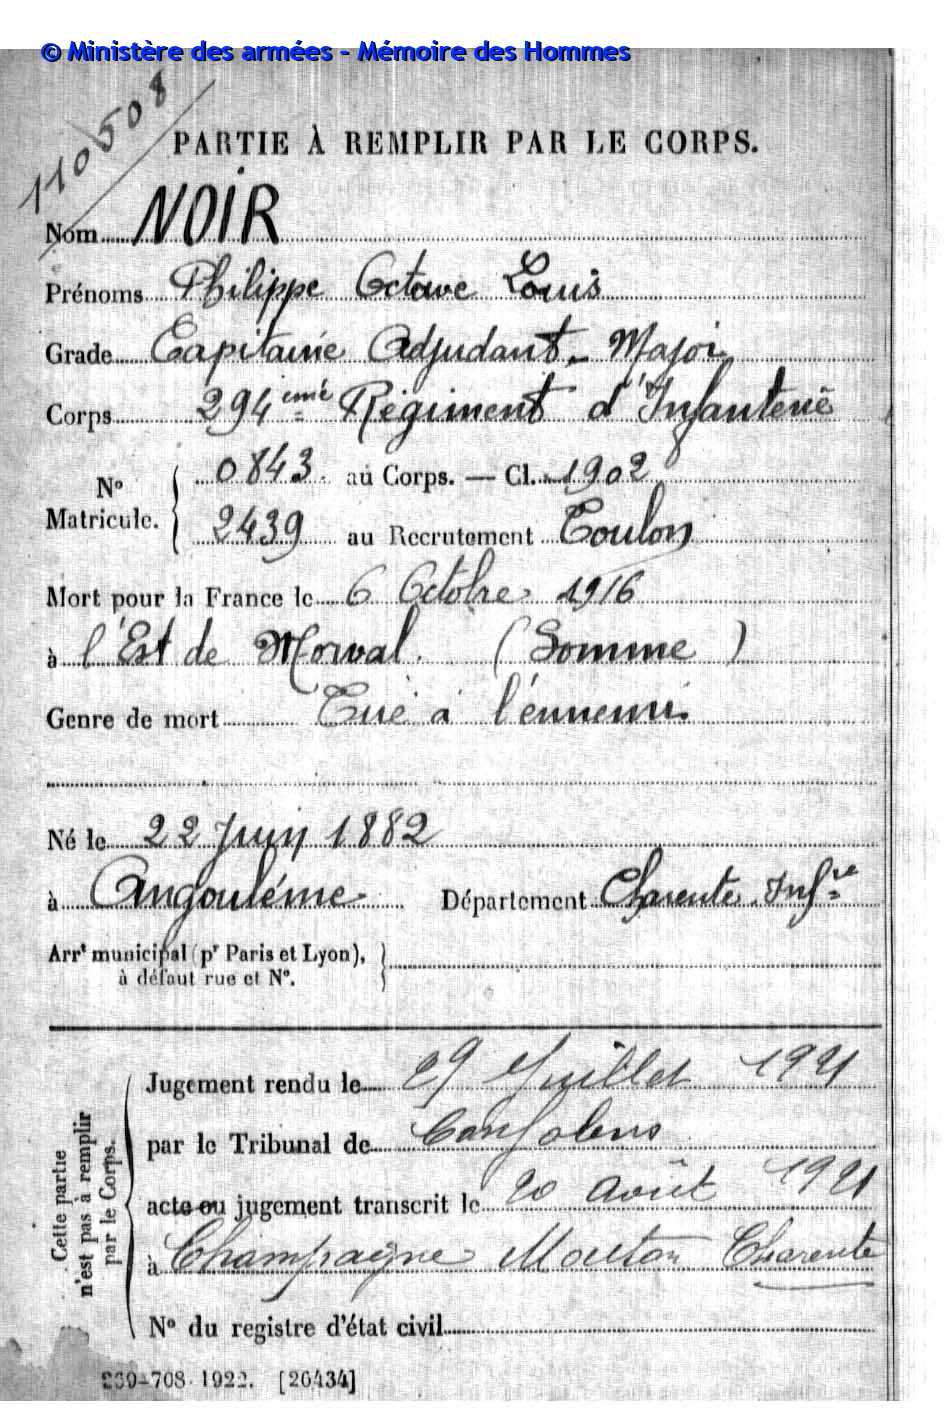 © Ministère des armées - Mémoire des Hommes
110508
PARTIE À REMPLIR PAR LE CORPS.
Nom NOIR
Prénoms Philippe Octave Louis
Grade Capitaine Adjudant-Major
Corps 294eme Régiment d'Infanterie
N° Matricule. { 0843 au Corps. — Cl. 1902
2439 au Recrutement Toulon
Mort pour la France le 6 Octobre 1916
à l'Est de Morval (Somme)
Genre de mort Tué à l'ennemi
Né le 22 Juin 1882
à Angoulême Département Charente Infre
Arrt municipal (pr Paris et Lyon),
à défaut rue et N°.
Cette partie n'est pas à remplir par le Corps.
Jugement rendu le 29 Juillet 1921
par le Tribunal de Confolens
acte ou jugement transcrit le 20 août 1921
à Champagne Mouton Charente
N° du registre d'état civil
269-708. 1922. [26434]